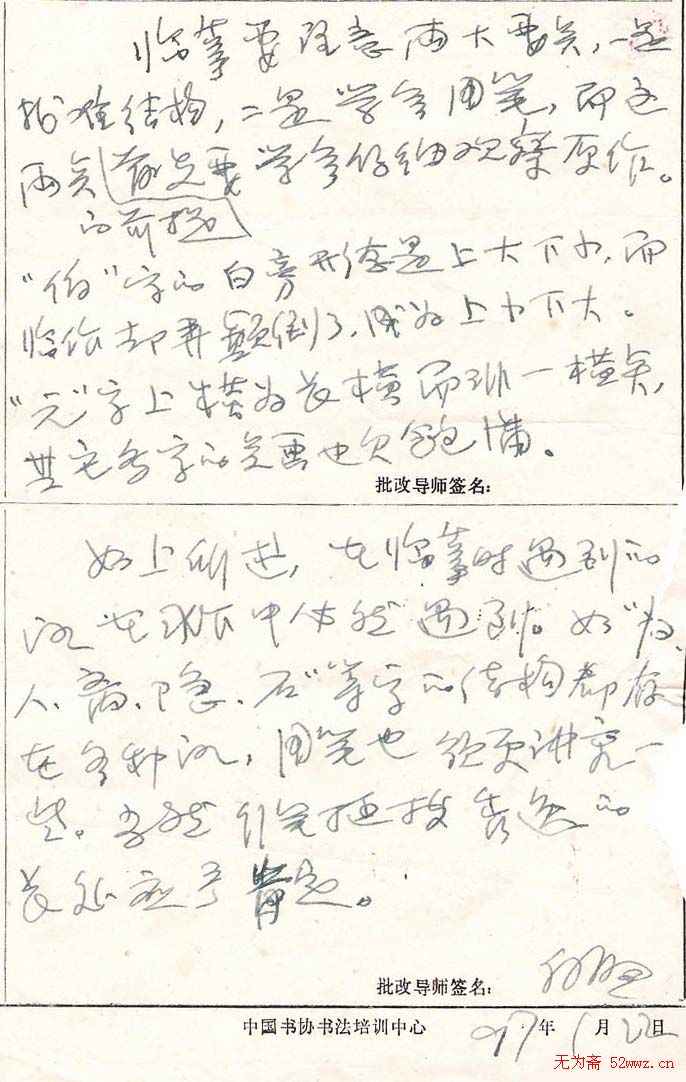 临摹要注意两大要点,一是
找准结构,二是学会用笔,而这
两点首先要学会仔细观察原作。
的前提
“伯”字的白旁形态是上大下小,而
临作却弄颠倒了,成为上小下大。
“元”字上横为长横而非一横点,
其它各字的点画也欠饱满。
批改导师签名:
如上所述,在临摹时遇到的
在 中依然遇到。如“为、
人、斋、隐、石”等字的结构都存
在各种 ,用笔也须更讲究一
些。当然行笔挺拔秀逸的
长处应予肯定。
批改导师签名:
中国书协书法培训中心 97年1月22日
无为斋 52wwz.cn